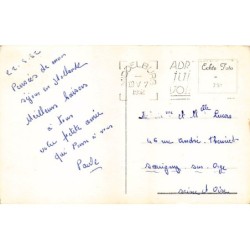 22.5.52
Pensées de mon
séjour en Hollande
Meilleurs baisers
à tous
votre petite amie
qui pense à vous
Paule
Echte Foto
et Mlle Lucas
46 rue André Theuriet
Savigny sur Orge
Seine et Oise